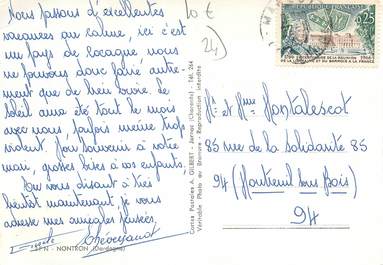 Nous passons d'excellentes
vacances au calme, ici c'est
un pays de cocagne nous
ne pouvons donc faire autre-
ment que de bien vivre. Le
soleil aura été tout le mois
avec nous, parfois même trop
violent. Bon souvenir à votre
mari, grosses bises à vos enfants.
Vous vous disant à très
bientôt maintenant, je vous
adresse mes amicales pensées.
N - NONTRON (Dordogne)
10 €
24
Cartes Postales A. GILBERT - Jarnac (Charente) - Tél. 264
Véritable Photo au Bromure - Reproduction interdite
REPUBLIQUE FRANÇAISE
0,25
BICENTENAIRE DE LA REUNION 1966
DE LA LORRAINE ET DU BARROIS A LA FRANCE
Mr et Mme Montalescot
85 rue de la Solidarité 85
94 (Montreuil sous Bois)
94